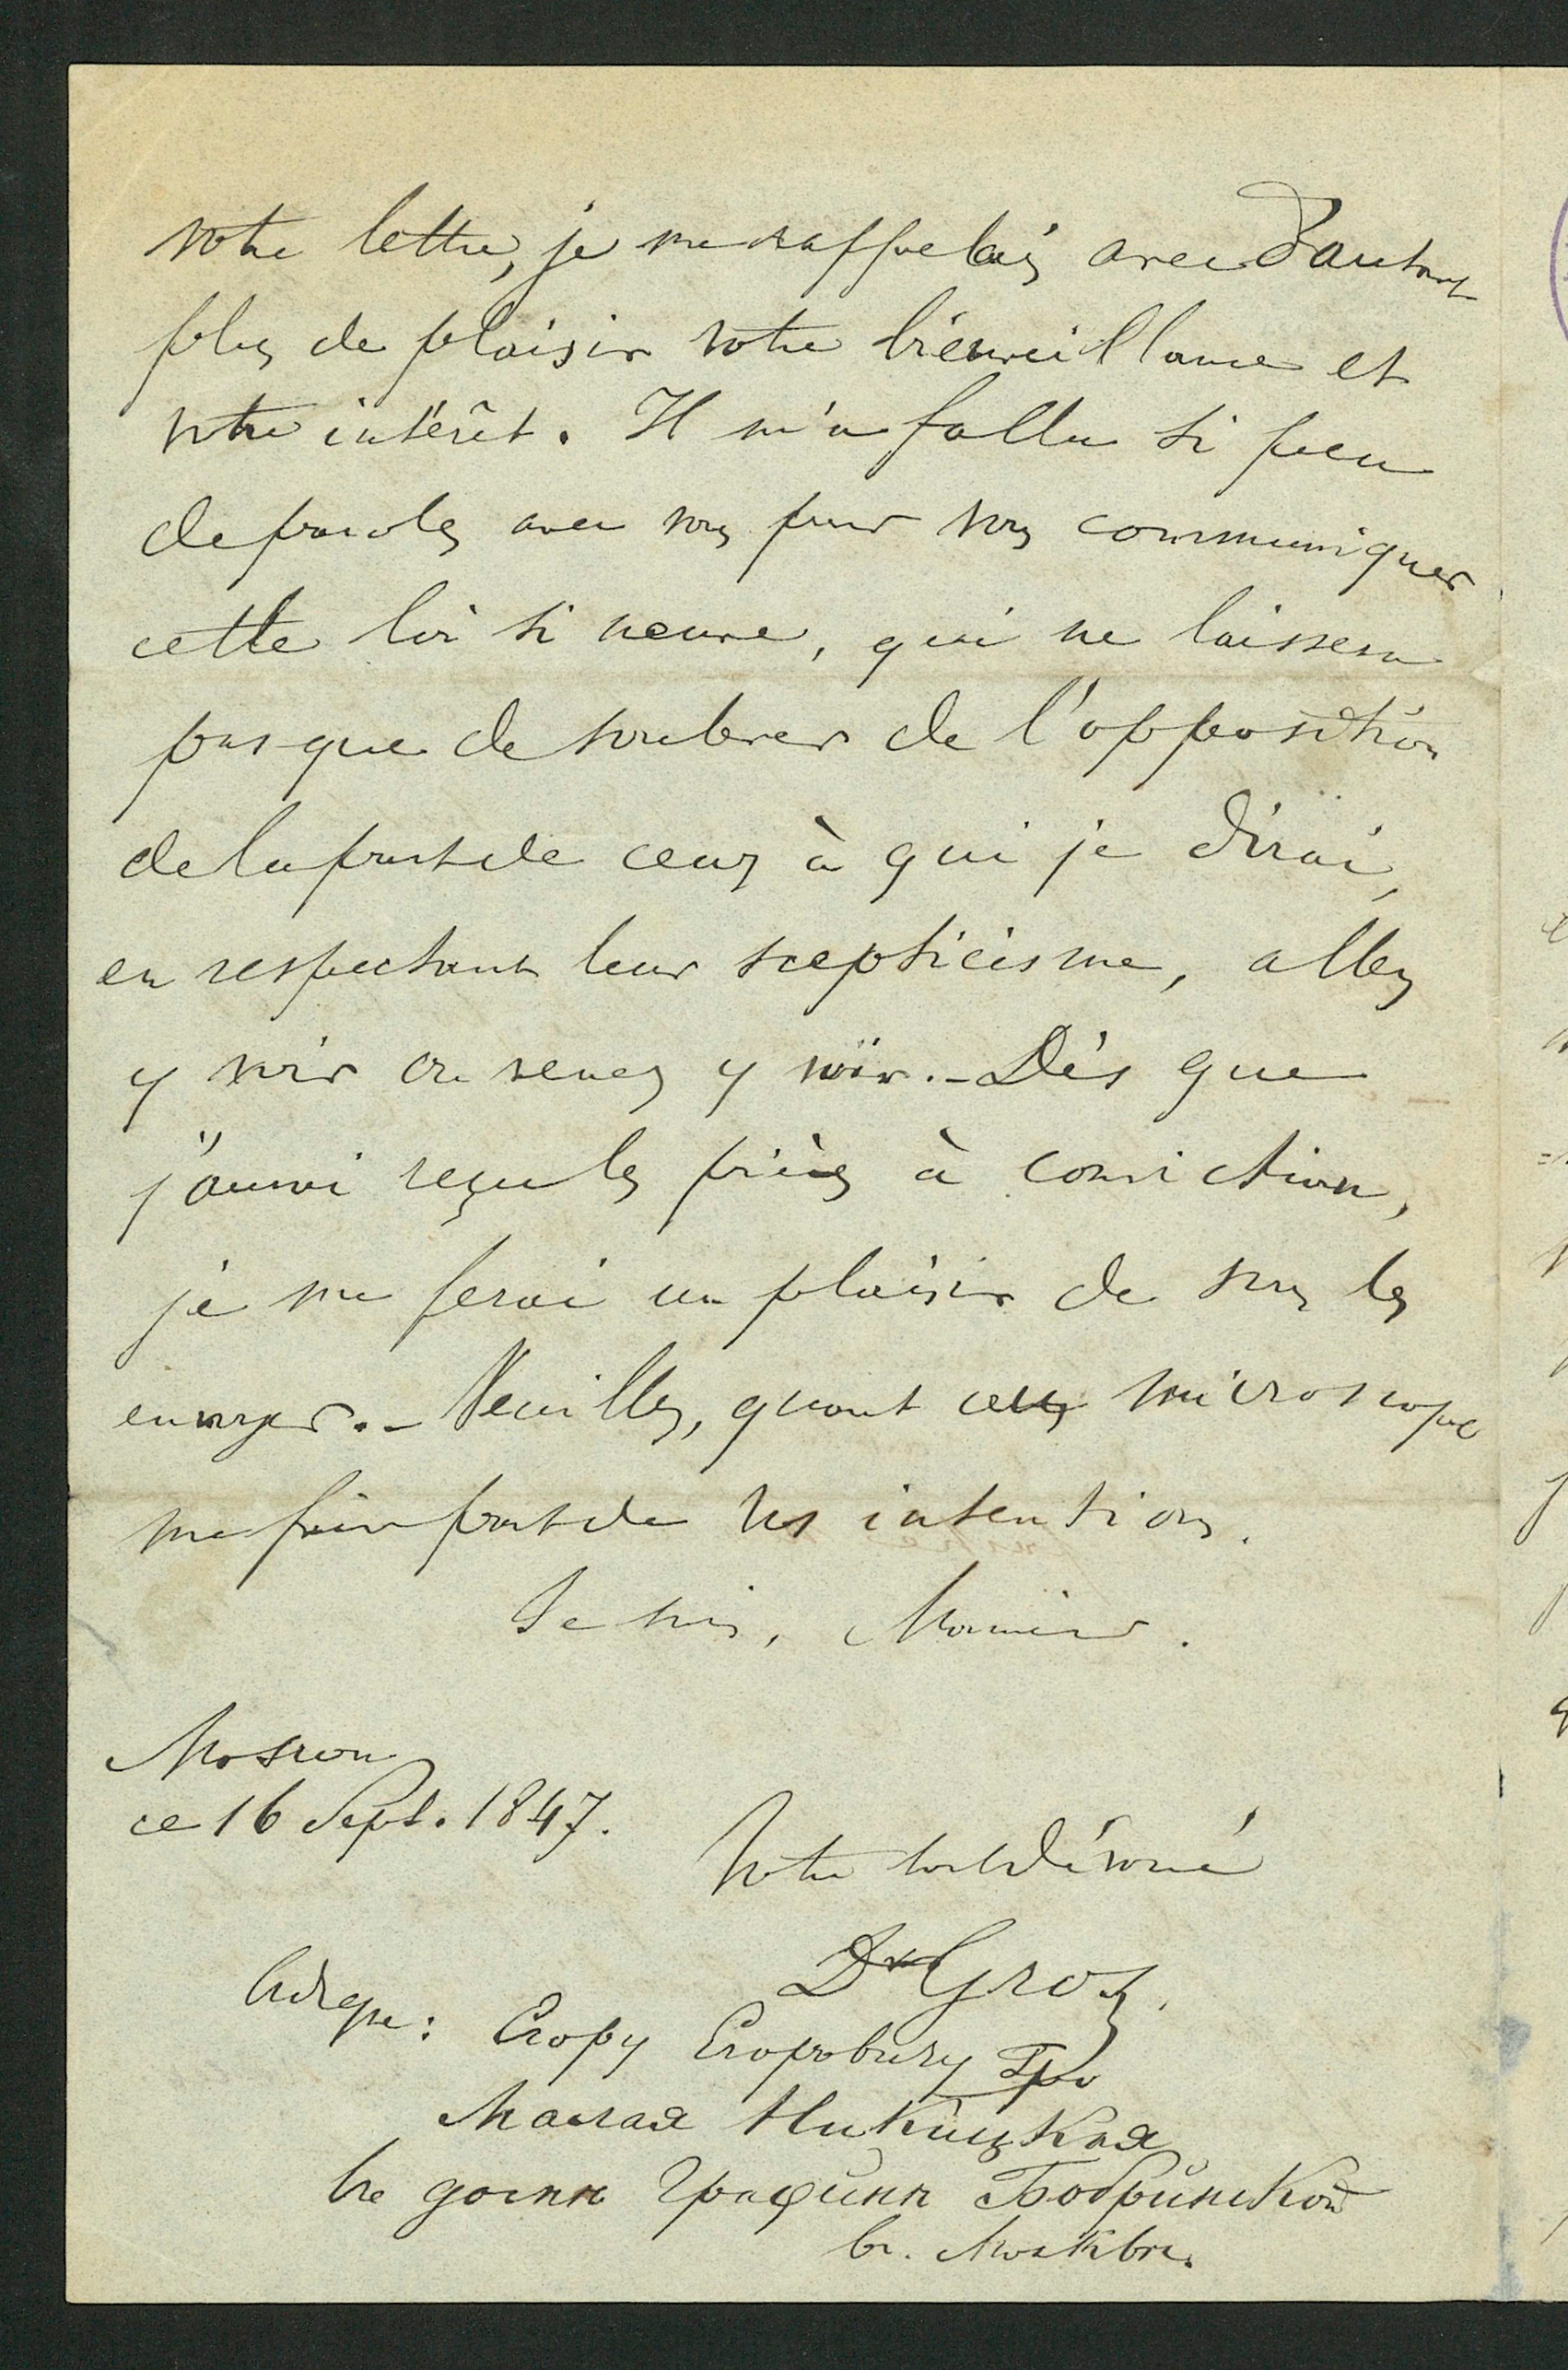 votre lettre, je me rappelais avec d'autant
plus de plaisir votre bienveillance et
votre intérêt. Il m'a fallu si peu
de paroles avec vous pour vous communiquer
cette loi si neuve, qui ne laissera
pas que de soulever de l'opposition
de la part de ceux à qui je dirai,
en respectant leur scepticisme, allez
y voir ou venez y voir. - Dès que
j'aurai reçu les pièces à conviction,
je me ferai un plaisir de vous les
envoyer. - Veuillez, quant au microscope
me faire part de vos intentions.
Je suis, Monsieur.
Moscou
ce 16 Sept. 1847.
Votre tout dévoué
Dr Gros.
Adresse: Егору Егоровичу Гро
Малая Никицкая
въ домѣ Графини Бобринской
въ Москвѣ.